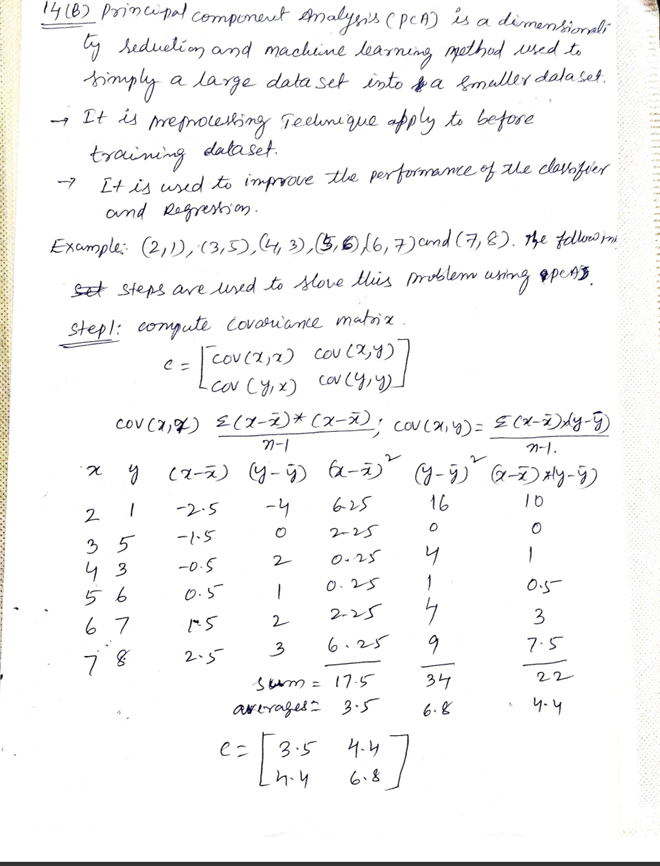 14(B) Principal component Analysis (PCA) is a dimensionali
ty reduction and machine learning method used to
simply a large data set into a smaller data set.
→ It is preprocessing Technique apply to before
training dataset.
→ It is used to improve the performance of the classifier
and Regression.
Example: (2,1), (3,5), (4,3), (5,6), (6,7) and (7,8). The following
set steps are used to slove this problem using PCA
Step1: compute covariance matrix.
c = [cov(x,x) cov(x,y)
cov(y,x) cov(y,y)]
cov(x,x) Σ(x-x̄)*(x-x̄)/n-1; cov(x,y) = Σ(x-x̄)*(y-ȳ)/n-1.
x y (x-x̄) (y-ȳ) (x-x̄)² (y-ȳ)² (x-x̄)*(y-ȳ)
2 1 -2.5 -4 6.25 16 10
3 5 -1.5 0 2.25 0 0
4 3 -0.5 2 0.25 4 1
5 6 0.5 1 0.25 1 0.5
6 7 1.5 2 2.25 4 3
7 8 2.5 3 6.25 9 7.5
sum = 17.5 34 22
averages = 3.5 6.8 4.4
c = [3.5 4.4
4.4 6.8]